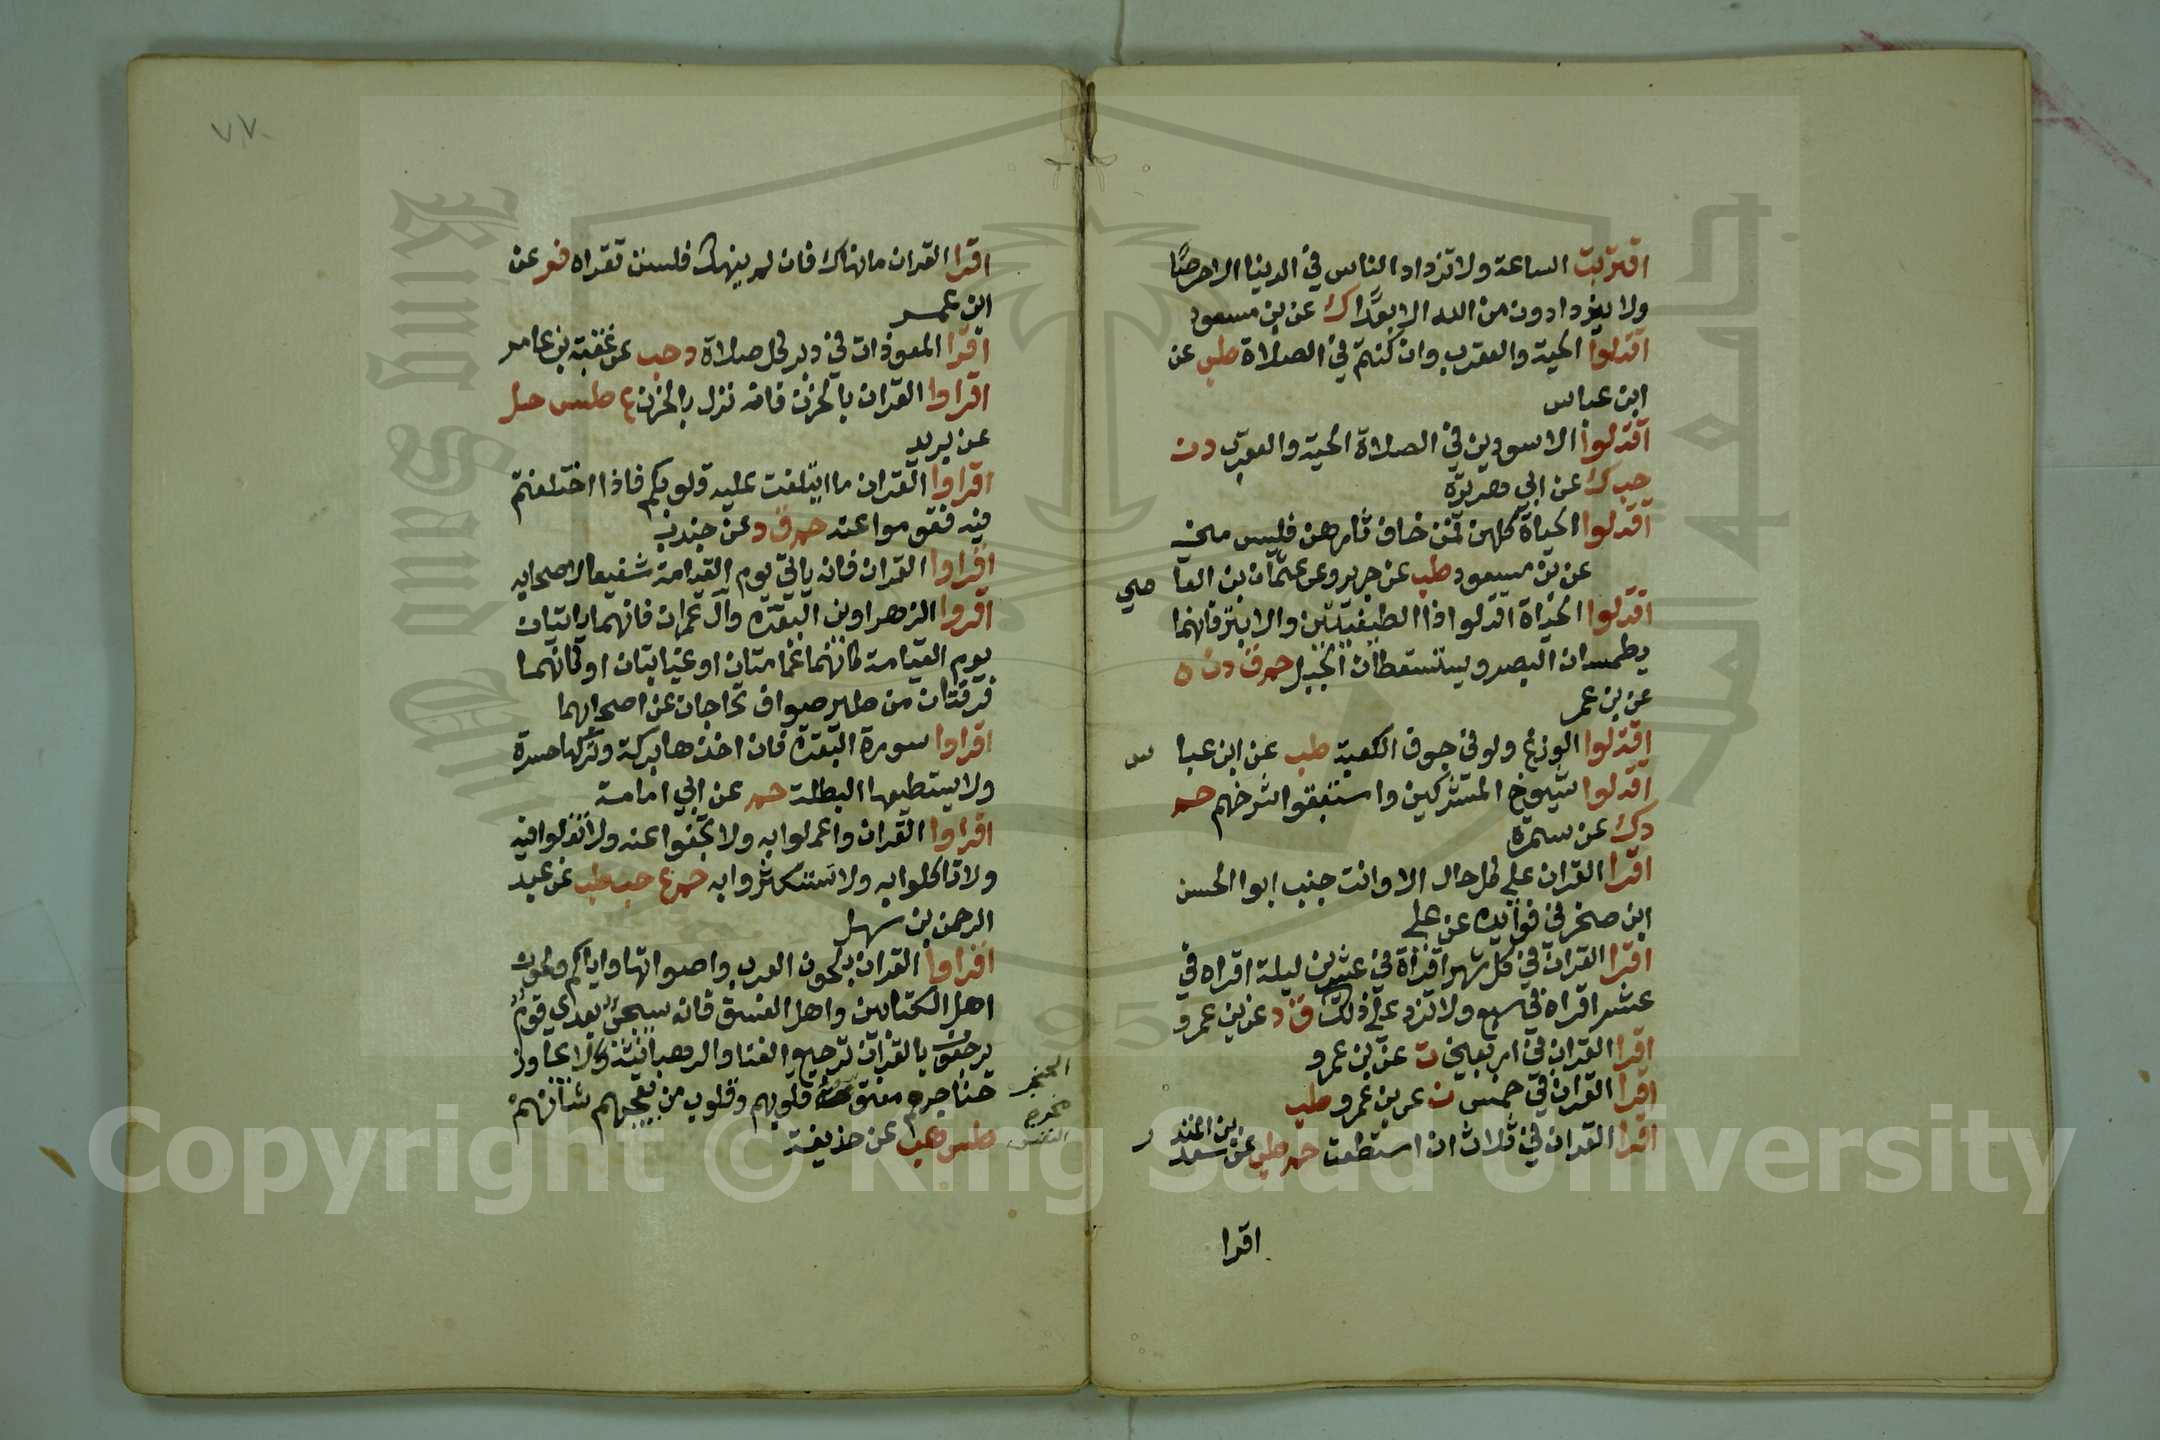 اقتربت الساعة ولا تزداد الناس في الدنيا الا حرصًا
ولا يزدادون من الله الا بعدًا ك عن بن مسعود
اقتلوا الحية والعقرب وان كنتم في الصلاة طب عن
ابن عباس
اقتلوا الاسودين في الصلاة الحية والعقرب د ت
حب ك عن ابي هريرة
اقتلوا الحياة كلهن فمن خاف ثارهن فليس مني
عن بن مسعود طب عن جرير وعن عثمان بن العا صي
اقتلوا الحياة اقتلوا ذا الطفيتين والابتر فانهما
يطمسان البصر ويستسقطان الحبل حم ق د ت ه
عن بن عمر
اقتلوا الوزغ ولو في جوف الكعبة طب عن ابن عبا س
اقتلوا شيوخ المشركين واستبقوا شرخهم حم
د ك عن سمرة
اقرا القران على كل حال الا وانت جنب ابوا الحسن
ابن صخر في فوايده عن علي
اقرا القران في كل شهر اقراه في عشرين ليلة اقراه في
عشر اقراه في سبع ولا تزد على ذلك ق د عن بن عمرو
اقرا القران في اربعين ت عن بن عمرو
اقرا القران في خمس ت عن بن عمرو طب
اقرا القران في ثلاث ان استطعت حم طب عن سعد بن المنذ ر
اقرا
٧٧
اقرا القران ما نهاك فان لم ينهك فلست تقراه فر عن
ابن عمر
اقرا المعوذات في دبر كل صلاة د حب عن عقبة بن عامر
اقراوا القران بالحزن فانه نزل بالحزن ع طس حل
عن بريد
اقراوا القران ما ايتلفت عليه قلوبكم فاذا اختلفتم
فيه فقوموا عنه حم ق د عن جندب
اقراوا القران فانه ياتي يوم القيامة شفيعا لاصحابه
اقروا الزهراوين البقرة وآل عمران فانهما ياتيان
يوم القيامة كانهما غمامتان او غيايتان او كانهما
فرقتان من طير صواف تحاجان عن اصحابهما
اقراوا سورة البقرة فان اخذها بركة وتركها حسرة
ولا يستطيعها البطلة حم عن ابي امامة
اقراوا القران واعملوا به ولا تجفوا عنه ولا تغلوا فيه
ولا تاكلوا به ولا تستكثروا به حم ع حب طب عن عبد
الرحمن بن سهل
اقراوا القران بلحون العرب واصواتها واياكم ولحون
اهل الكتابين واهل الفسق فانه سيجئ بعدي قوم
يرجعون بالقران ترجيع الغنا والرهبانية لا يجاوز
حناجرهم مفتونة قلوبهم وقلوب من يعجبهم شانهم
طس هب عن حذيفة
الحنجر
مخرج
النفس
Copyright © King Saud University
King Saud University
1957